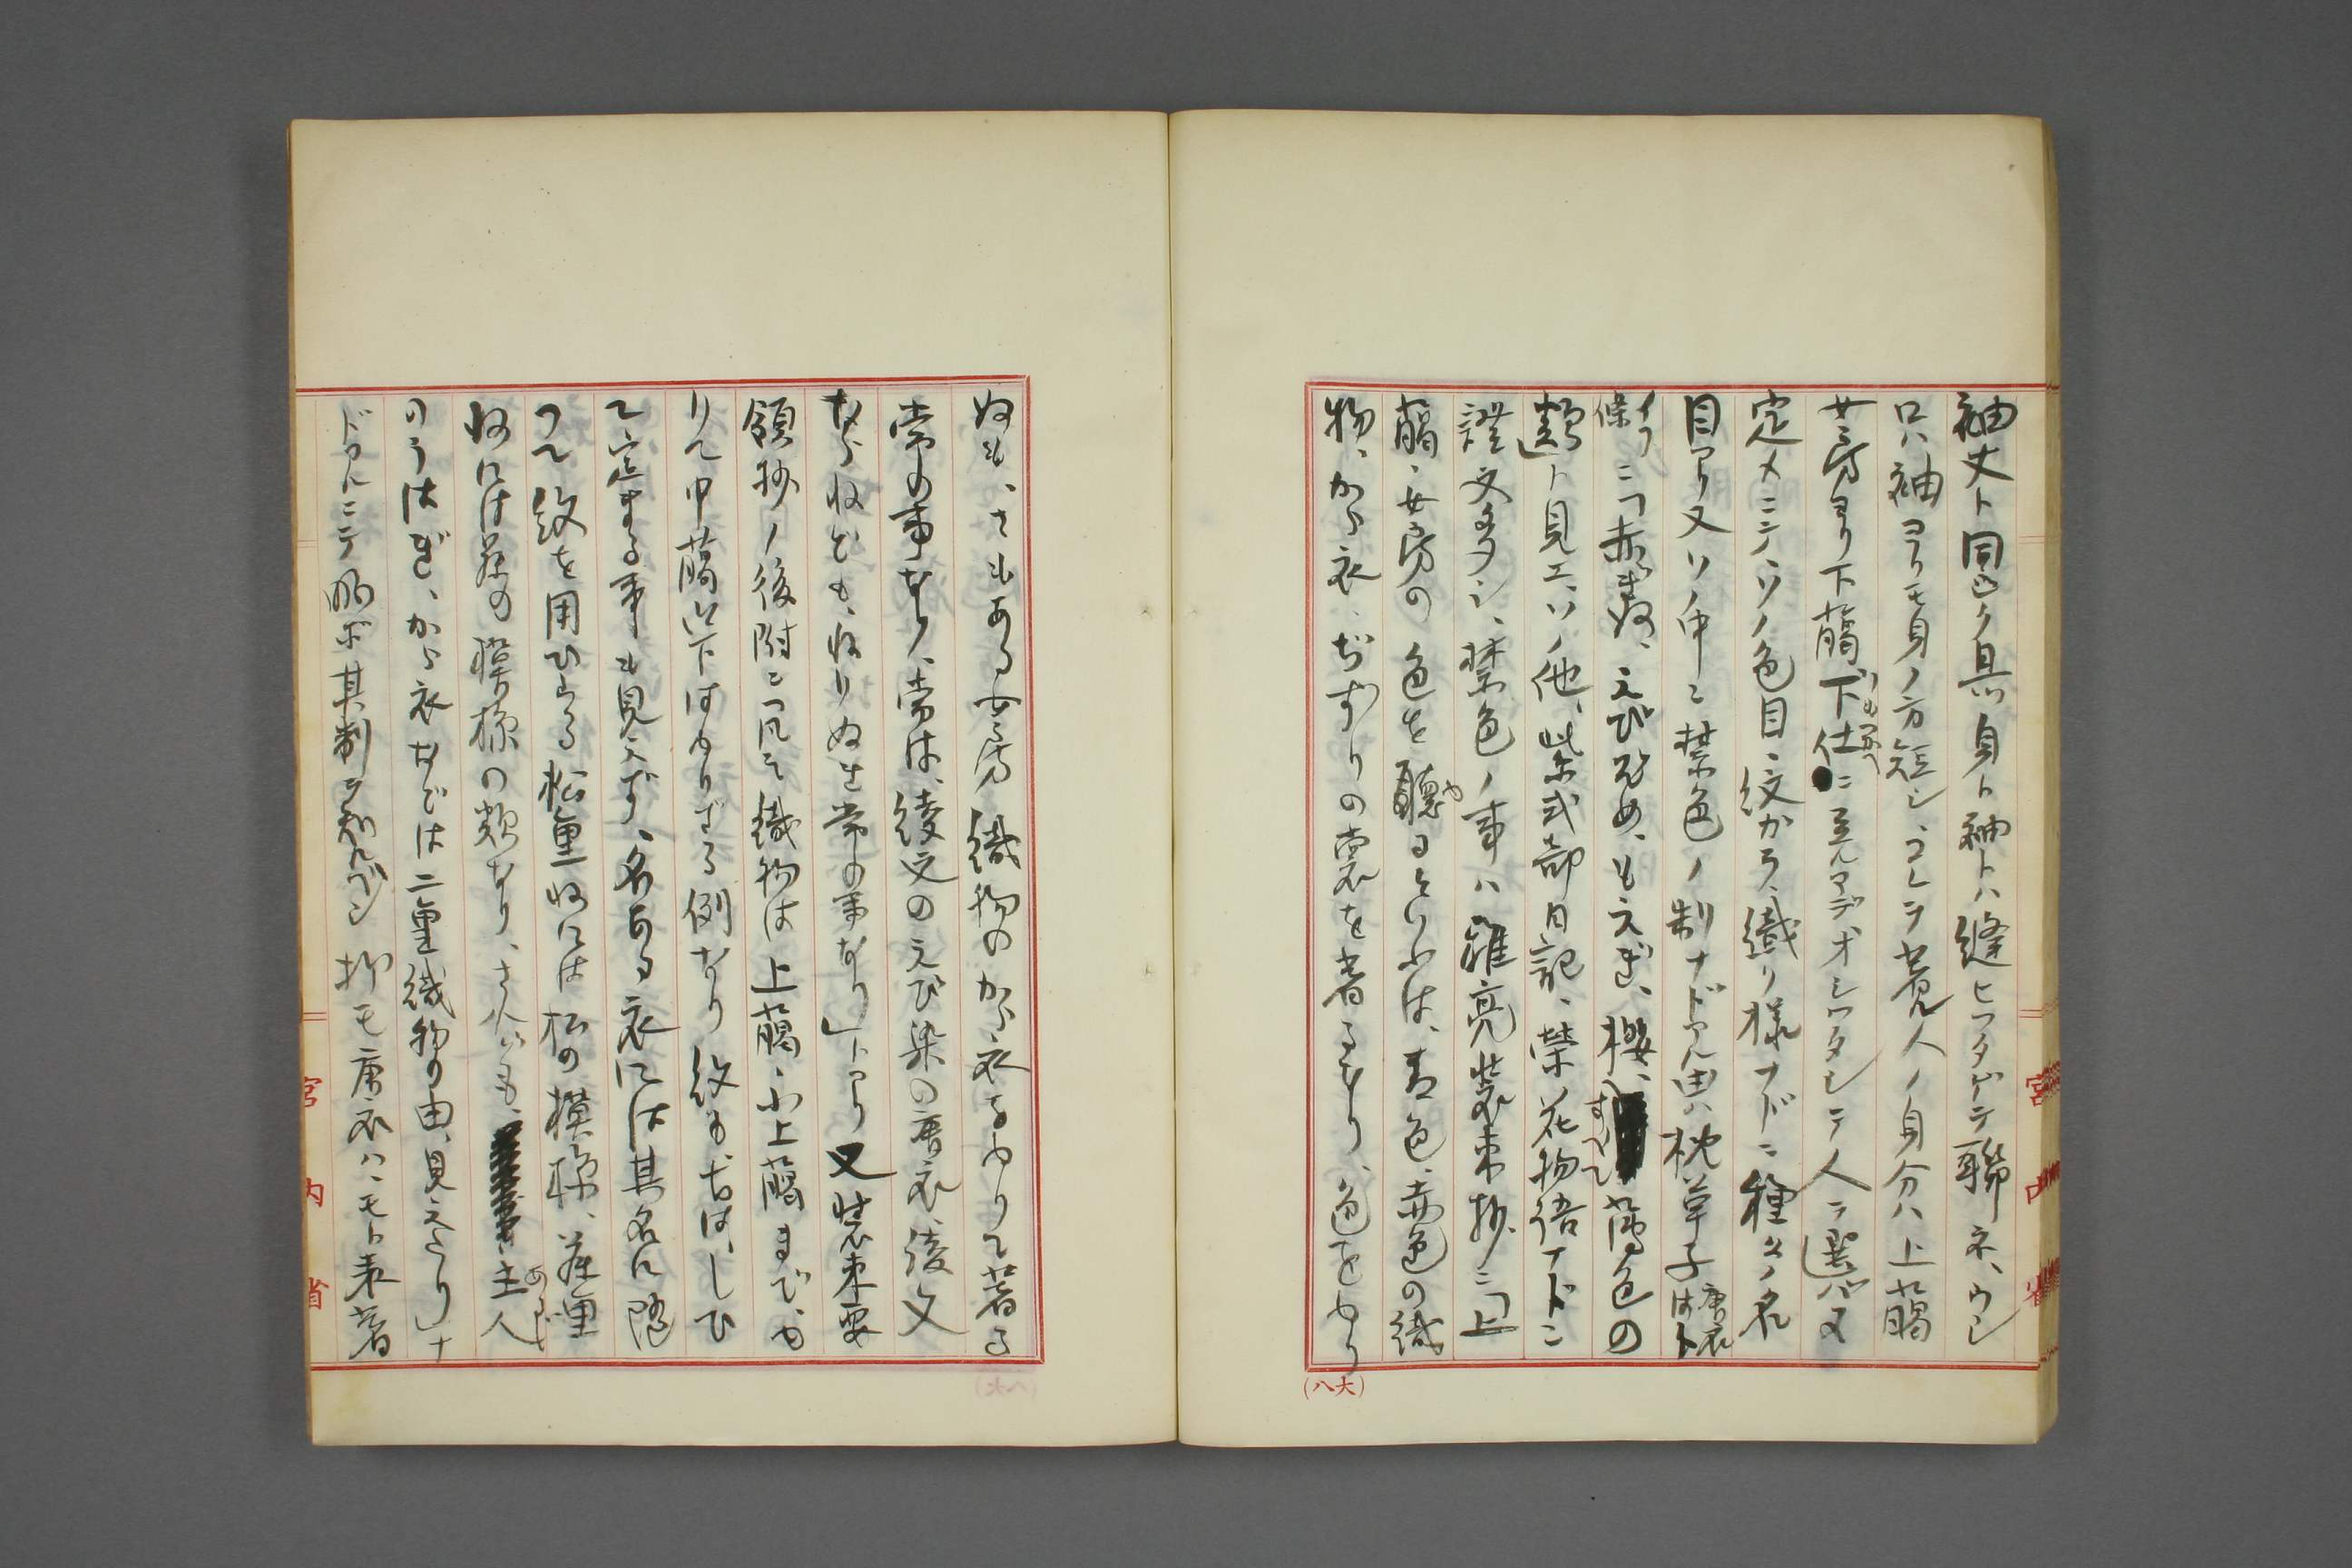 袖丈ト同ジク且ツ身ト袖トハ縫ヒツケテ聯ネ、ウシ
ロハ袖ヨリモ身ノ方短シ、コレヲ着ル人ノ身分ハ上﨟
女房ヨリ下﨟、下仕ニ至ルマデオシワタシテ人ヲ選バヌ
しもづかへ
定メニテ、ソノ色目、紋がラ、織リ様ナドニ種々ノ名
目アリ又ソノ中ニ禁色ノ制ナドアル由ハ枕草子唐衣はノ
條ニ「赤ぎぬ、えびぞめ、もえぎ、櫻、すべて薄色の
類」ト見エ、ソノ他、紫式部日記、榮花物語ナドニ
證文多シ、禁色ノ事ハ雅亮裝束抄ニ「上
﨟、女房の色を聽るといふは、青色、赤色の織
物、から衣、ぢずりの裳を着るなり、色をゆり
ねも、さもある女房織物のから衣をゆりて着る
常の事なり、常は、綾文の えび染の唐衣、綾文
ならねども、ゆりぬは常の事なり」トアリ又裝束要
領抄ノ後附ニ「凡そ織物は上﨟、小上﨟まで、ゆ
りて中﨟以下はゆりざる例なり紋も、古は、しひ
て定まる事も見えず、名ある衣には其名に随
つて紋を用ひらる松重ねには松の模様、藤重
ねには藤の模様の類なり、されども、主人
のうはぎ、から衣などは二重織物の由、見えたり」ナ
ドアルニテ略ボ其制ヲ知ルベシ 抑モ唐衣ハ、モト表着
宮内省
(大八)